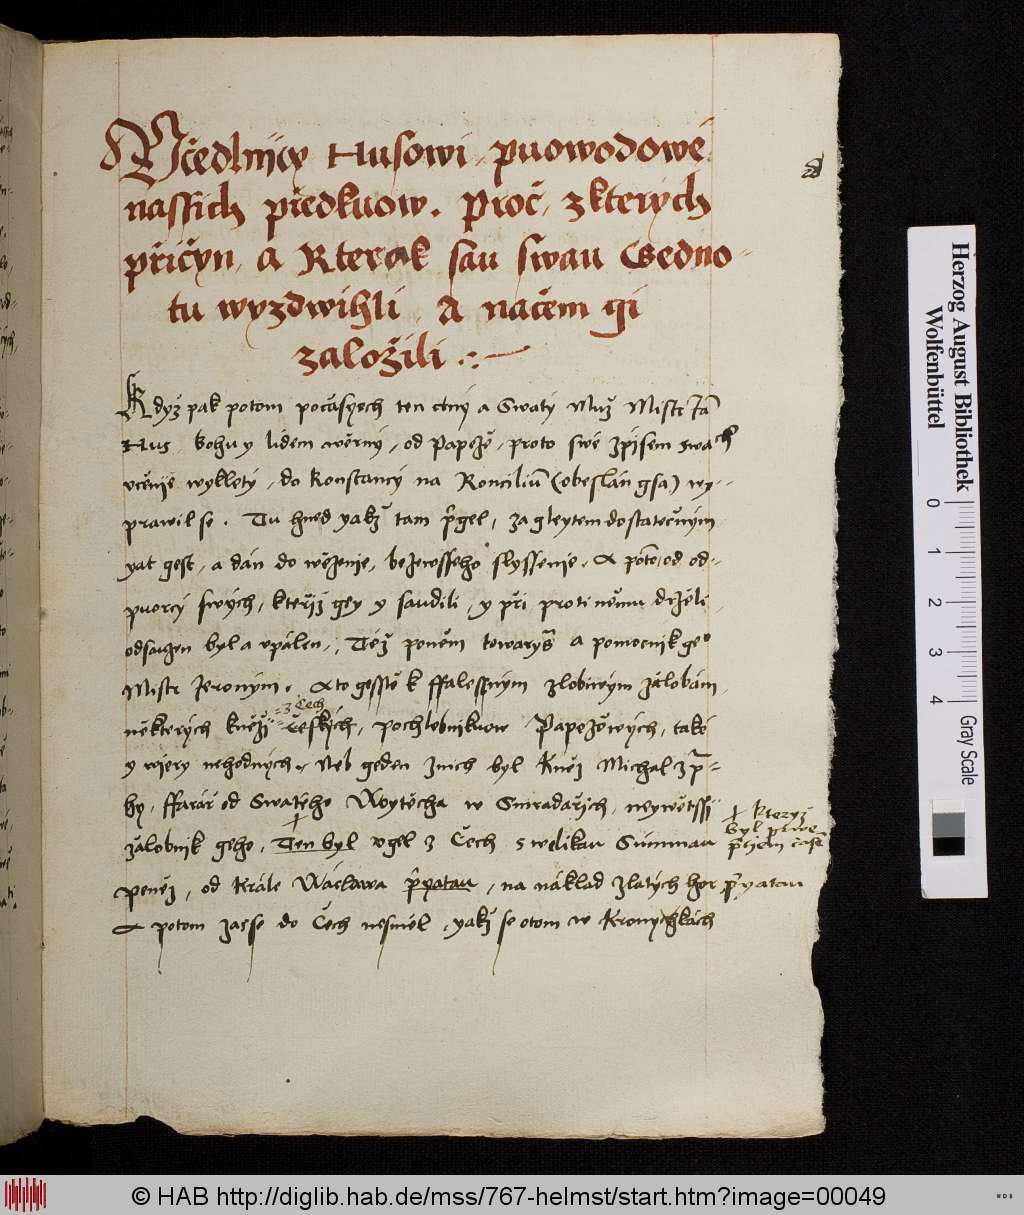 Včedlnijcy Husowi, puowodowé
nassich předkuow. Proč, z kterých
přičyn, a Kterak sau swau Gedno-
tu wyzdwihli, A načem gi
založili
Kdyz pak potom počasyech ten ctný a Swatý Muž Mistr Jan
Hus, bohu y lidem wěrný, od Papeže, proto swé zpisem swach
včenie wykletý, do Konstancy na Koncilium (obeslán gsa) wy-
prawil se. Tu hned yakž tam přigel, za gleytem dostatečným
yat gest, a dán do wězenie, bezewsseho slyssenie. A potom od od-
puorcý swých, kteřiz gey y saudili, y při proti němu drželi,
odsauzen byl a vpálen. Též potom towaryš a pomocnik geo
Mistr Jeroným. A to gesstě k ffalessným zlobiwým žalobám
některých kněži z Čech Českých, pochlebnikuow Papežowých, také
y wiery nehodných. Neb geden znich byl Kněz Michal z Pra-
hy, ffarář od Swatého Woytěcha w Smradařich, neywětssj
žalobnik geho, Ten byl vgel z Čech s welikau Summau
peněz, od Krále Wáclawa přigatau, na náklad zlatých hor přigatau
A potom zasse do Čech nesměl, yakž se o tom w Kronychkách
kteryz
byl prwe
Herzog August Bibliothek
Wolfenbüttel
0 1 2 3 4
Gray Scale
© HAB http://diglib.hab.de/mss/767-helmst/start.htm?image=00049
WDB